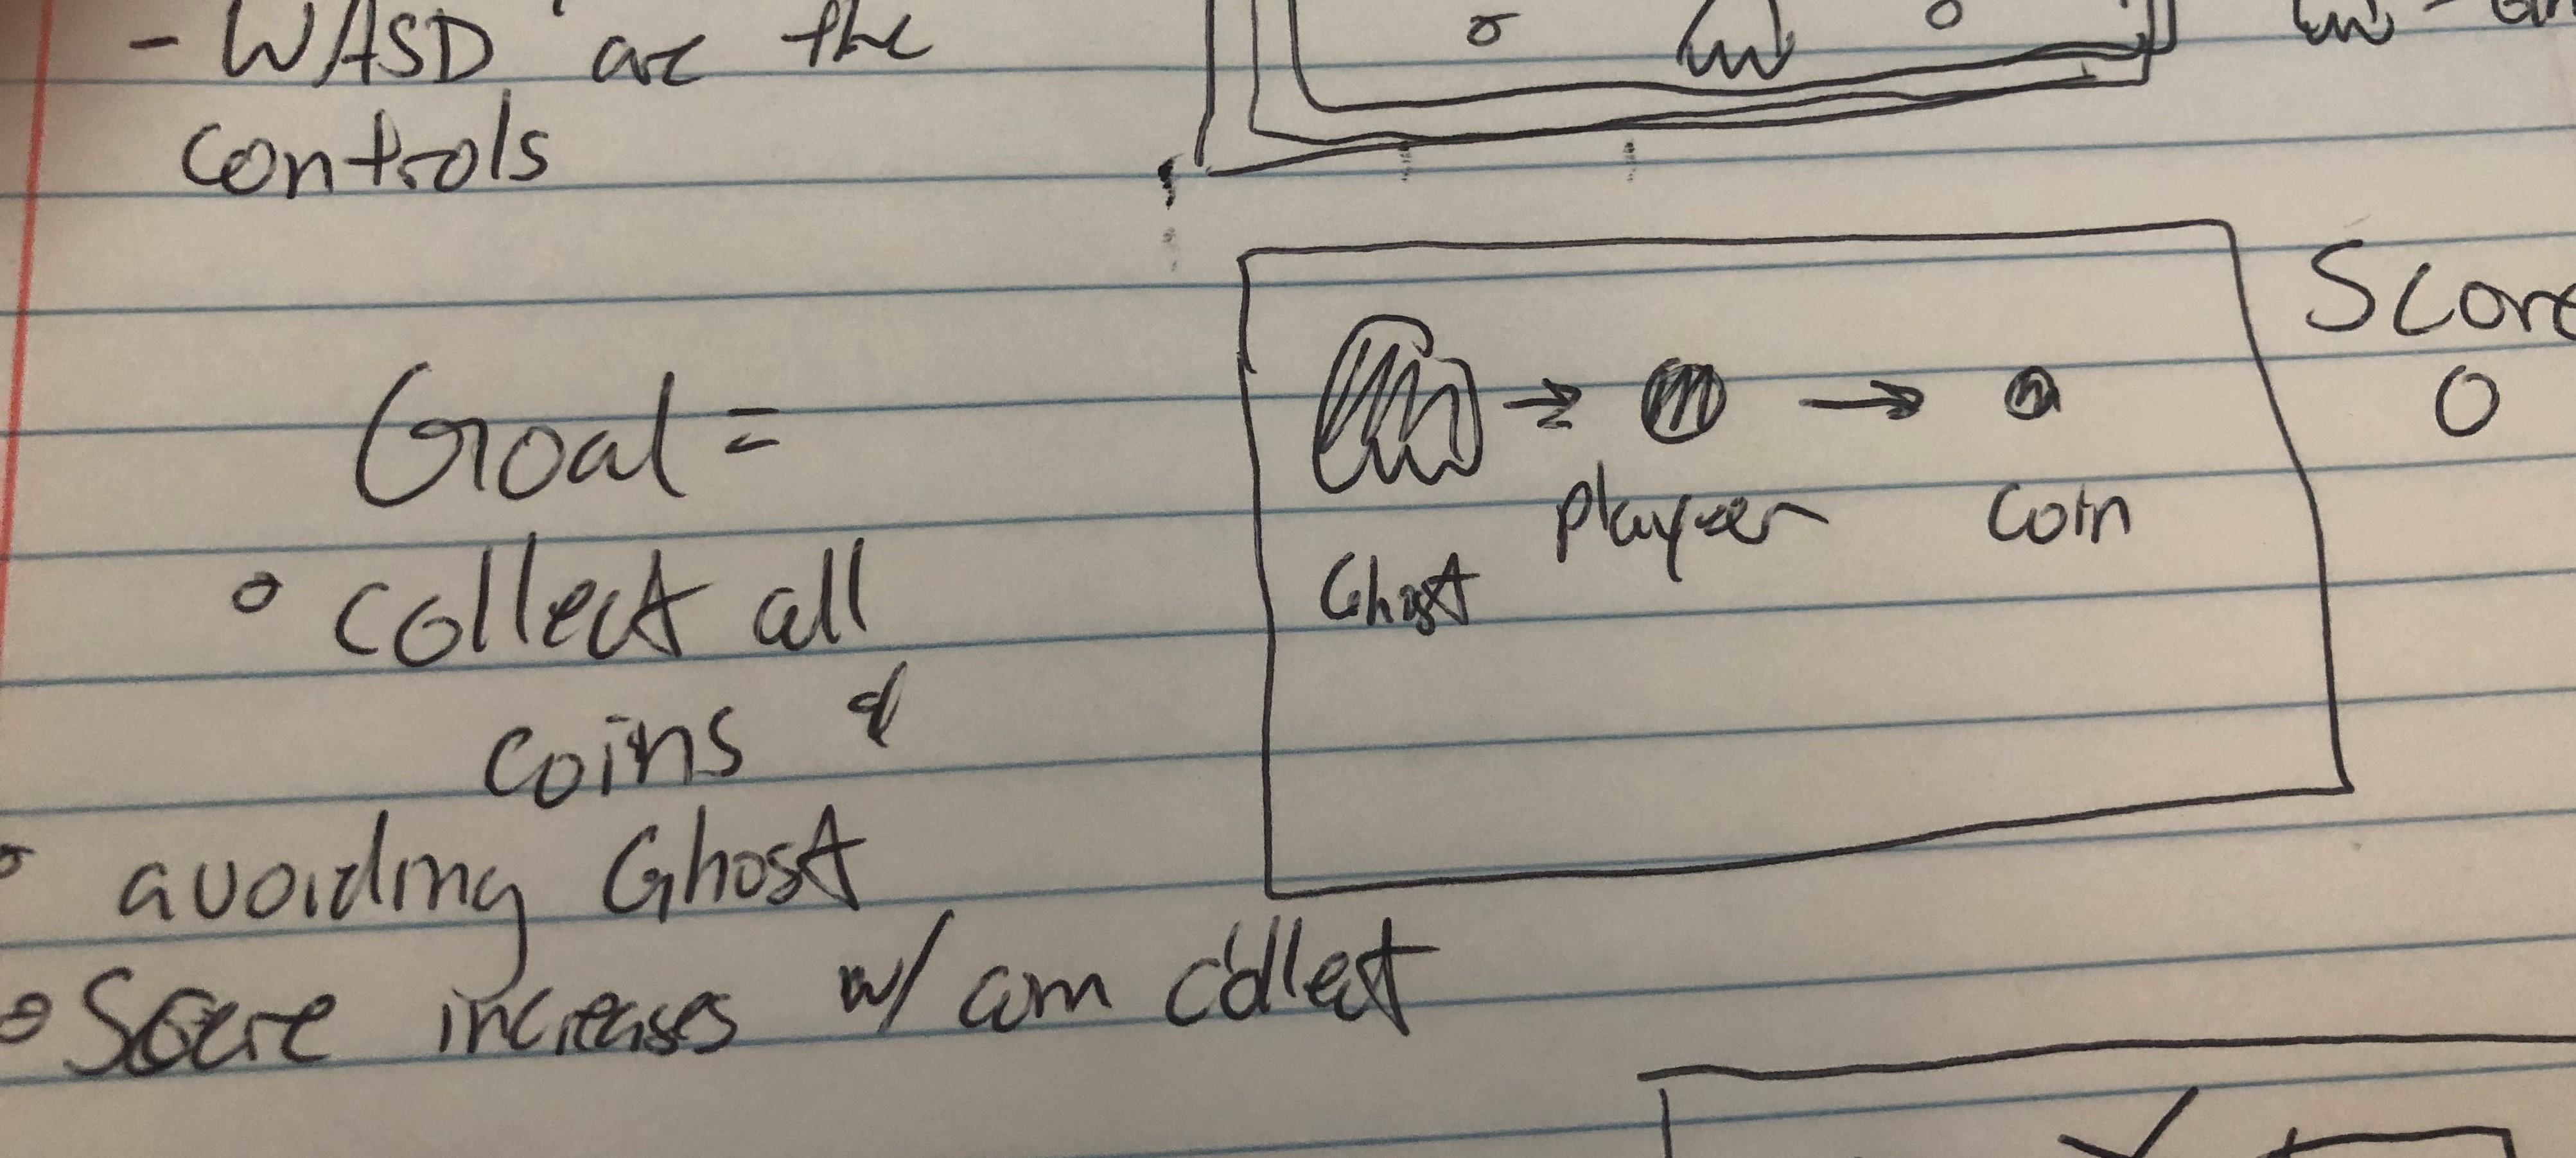 - WASD are the
controls
Goal =
collect all
coins &
avoiding Ghost
Score increases w/ coin collect
Score
0
player
coin
Ghost